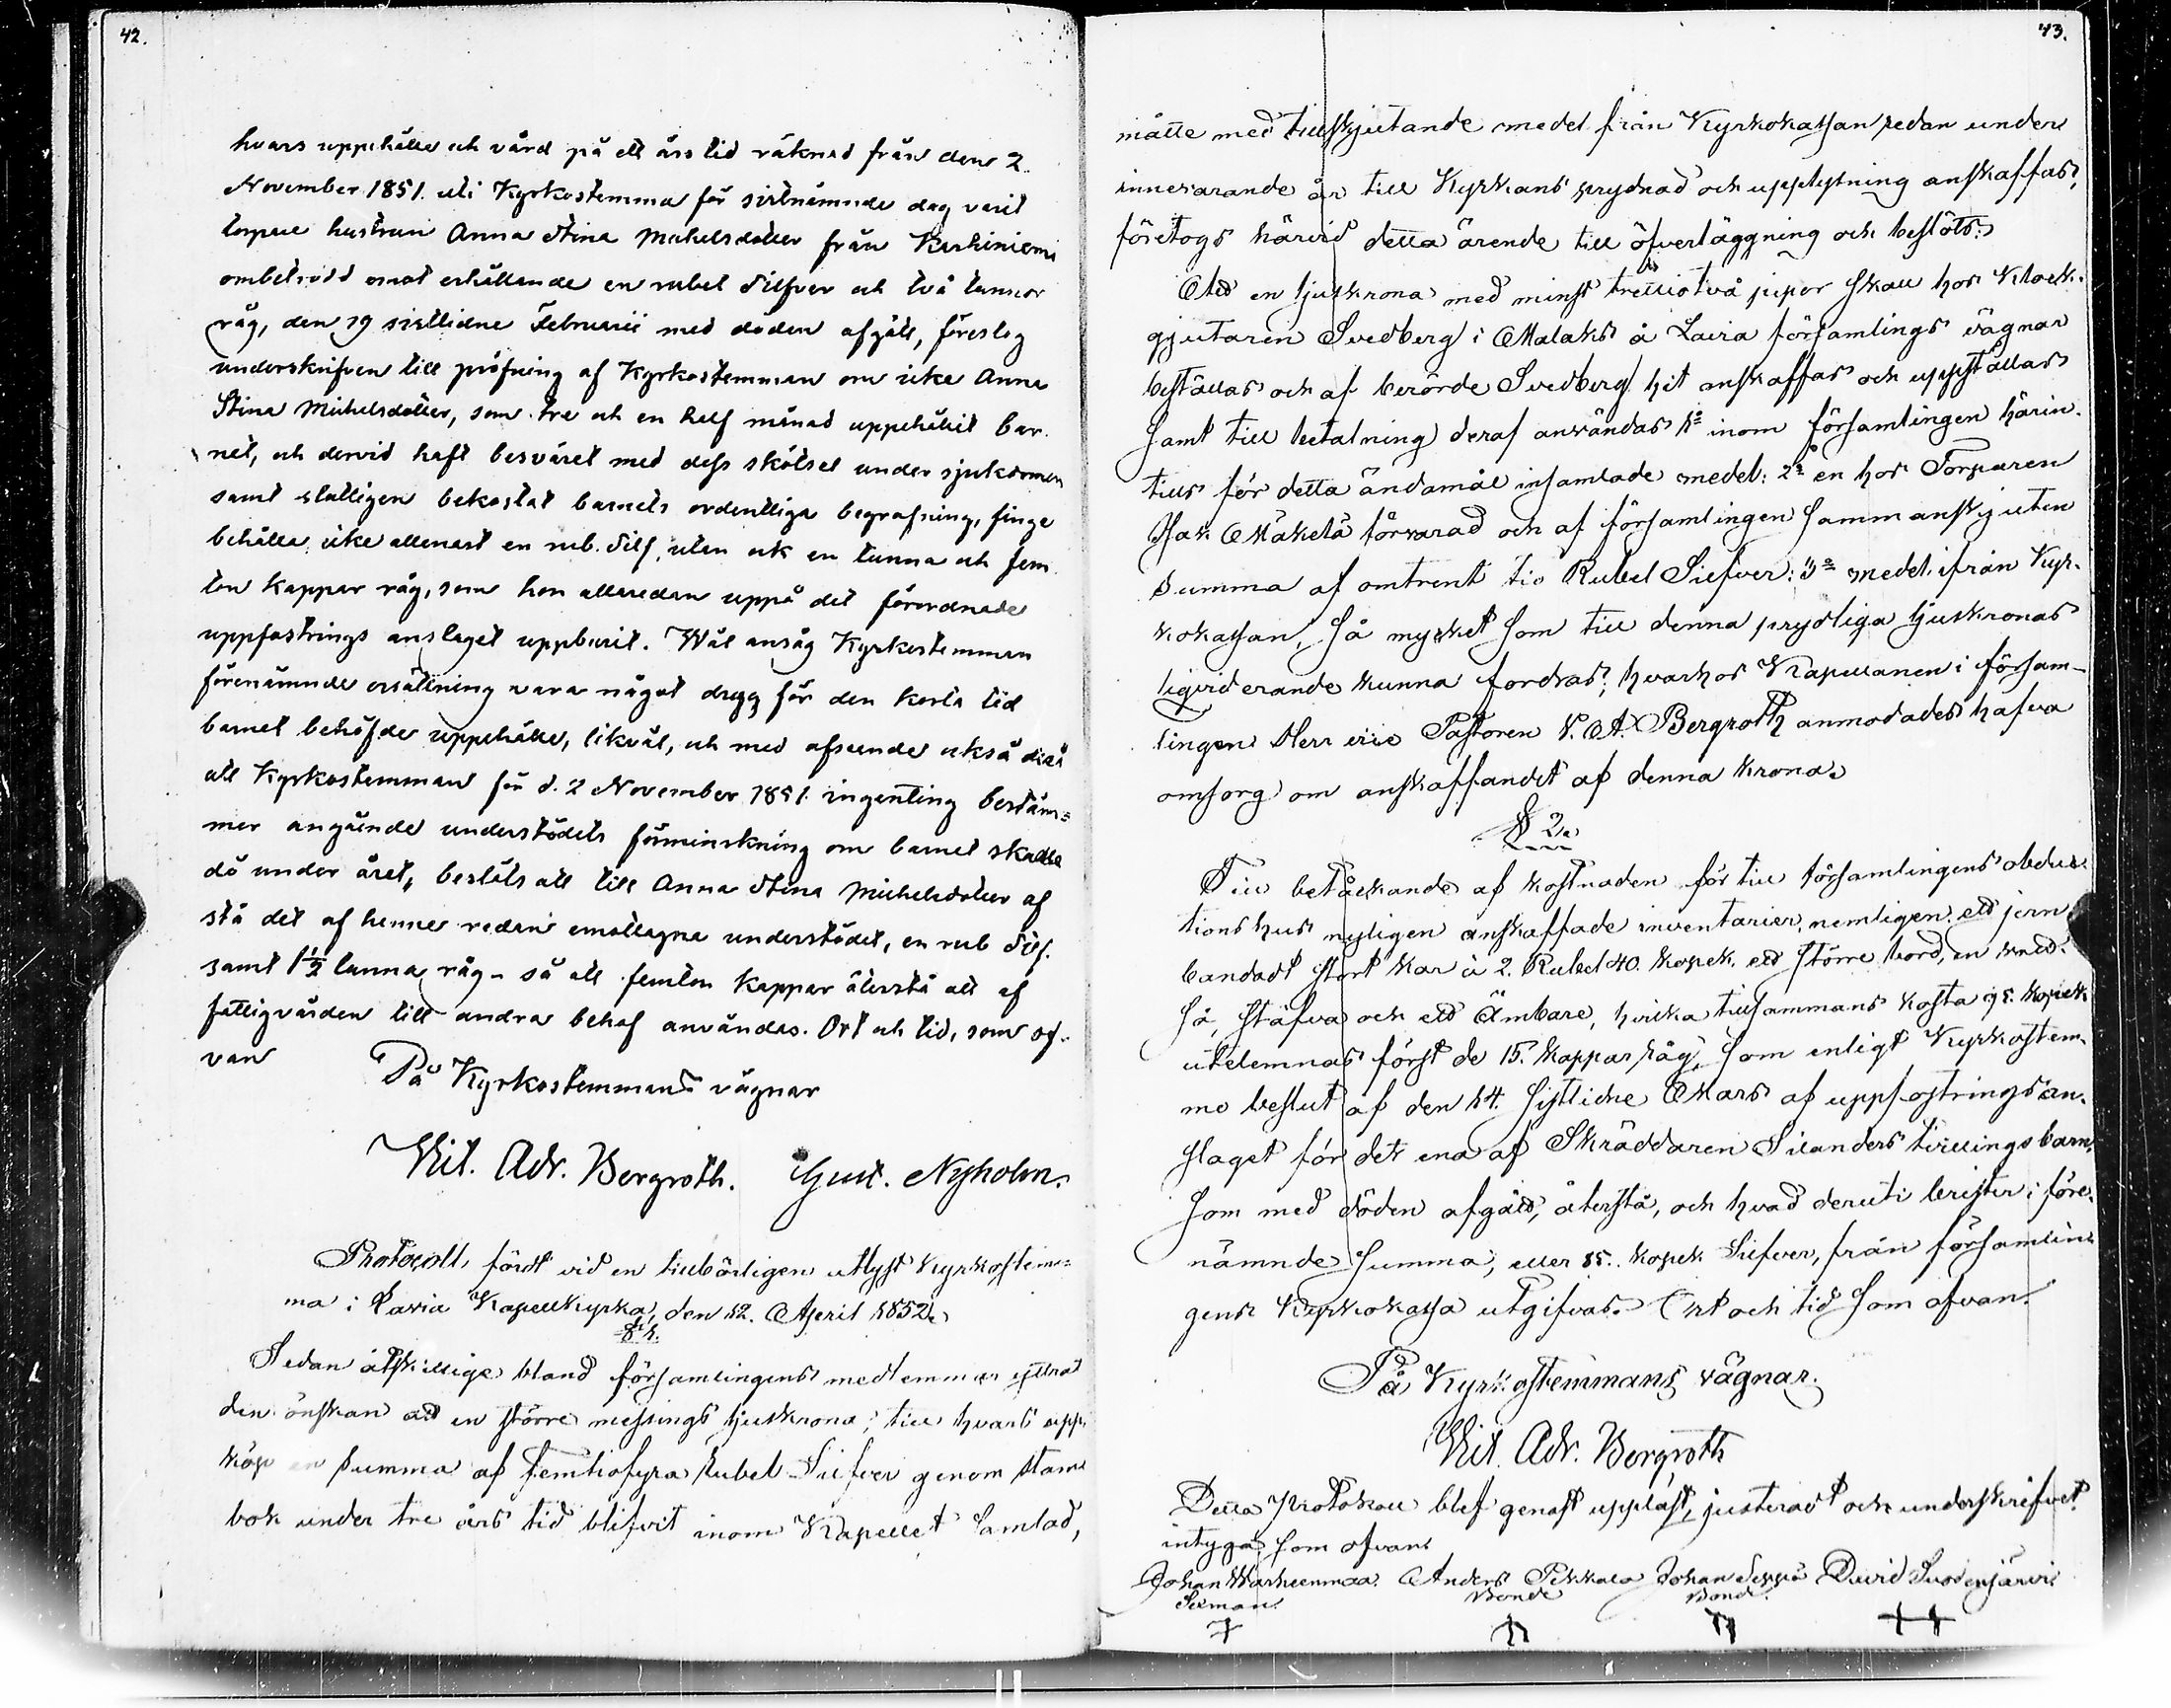 42.
hvars uppehälle och vård på ett års tid räknad från den 2
November 1851. uti Kyrkostemma för sistnämnde dag varit
torpare hustrun Anna Stina Michelsdotter från Karhiniemi
ombetrodd emot erhållande en rubel Silfver och två tunnor
råg, den 19 sistlidne Februarii med döden afgått, föreslog
underskrifven till pröfning af Kyrkostemman om icke Anna
Stina Michelsdotter, som tre och en half månad uppehållit bar-
net, och dervid haft besväret med dess skötsel under sjukdomen
samt slutligen bekostat barnets ordentliga begrafning, finge
behålla icke allenast en rub. Silf. utan ock en tunna och fem
ton kappar råg, som hon allaredan uppå det förordnade
uppfostrings anslaget uppburit. Wäl ansåg Kyrkostemman
förenämnde ersättning vara något dryg för den korta tid
barnet behöfde uppehälle, likväl, och med afseende också derå
att Kyrkostemman för d. 2 November 1851. ingenting bestäm=
mer angående understödets förminskning om barnet skulle
dö under året, beslöts att till Anna Stina Michelsdotter af
stå det af henne redan emottagna understödet, en rub Silf.
samt 1 1/2 tunna råg - så att femton kappar återstå att af
fattigvården till andra behof användas. Ort och tid, som of-
van
På Kyrkostemmans vägnar
Vit. Adr. Bergroth. Gust. Nyholm.
Protocoll, fördt vid en tillbörligen utlyst Kyrkostem=
ma i Lavia Kapellkyrka, den 12. April 1852.
§ 1.
Sedan åtskillige bland församlingens medlemmar yttrat
den önskan att en större messings ljuskrona, till hvars upp
köp en Summa af femtiofyra Rubel Silfver genom stam
bok under tre års tid blifvit inom Kapellet samlad,
43.
måtte med tillskjutande medel från Kyrkokassan redan under
innevarande år till Kyrkans prydnad och upplysning anskaffas,
företogs härvid detta ärende till öfverläggning och beslöts:
Att en ljuskrona med minst trettiotvå pipor skall hos Klock-
gjutaren Svedberg i Malaks å Lavia församlings vägnar
beställas och af berörde Svedberg hit anskaffas och uppställas
samt till betalning deraf användas 1º inom församlingen härin-
tills för detta ändamål insamlade medel: 2º en hos Torparen
Isak Mäkelä förvarad och af församlingen sammanskjuten
Summa af omtrent tio Rubel Silfver: 3º medel ifrån Kyr-
kokassan, så mycket som till denna prydliga ljuskronas
liqviderande kunna fordras; hvarhos Kapellanen i försam-
lingen Herr vice Pastoren V. A. Bergroth anmodades hafva
omsorg om anskaffandet af denna krona.
§ 2.
Till betäckande af kostnaden för till församlingens obduc-
tions hus nyligen anskaffade inventarier, nemligen ett jern
bandadt stort kar à 2. Rubel 40. kopek, ett större bord,
så, stäfva och ett Ämbare, hvilka tillsammans kosta 95. kopek
utelemnas först de 15. kappar råg, som enligt Kyrkostem-
mo beslut af den 14. sistlidne Mars af uppfostringsan-
slaget för det ena af Skräddaren Silanders tvillingsbarn,
som med döden afgått, återstå, och hvad deruti brister i före-
nämnde summa, eller 85. kopek Silfver, från församlin-
gens Kyrkokassa utgifvas. Ort och tid som ofvan.
På Kyrkostemmans vägnar.
Vit. Adr. Bergroth
Detta Protokoll blef genast uppläst, justeradt och underskrifvet
intyga som ofvan
Johan Warheenmaa. Anders Pekkala Johan Seppä David Suodenjärvi
Sexman. Bonde Bonde.